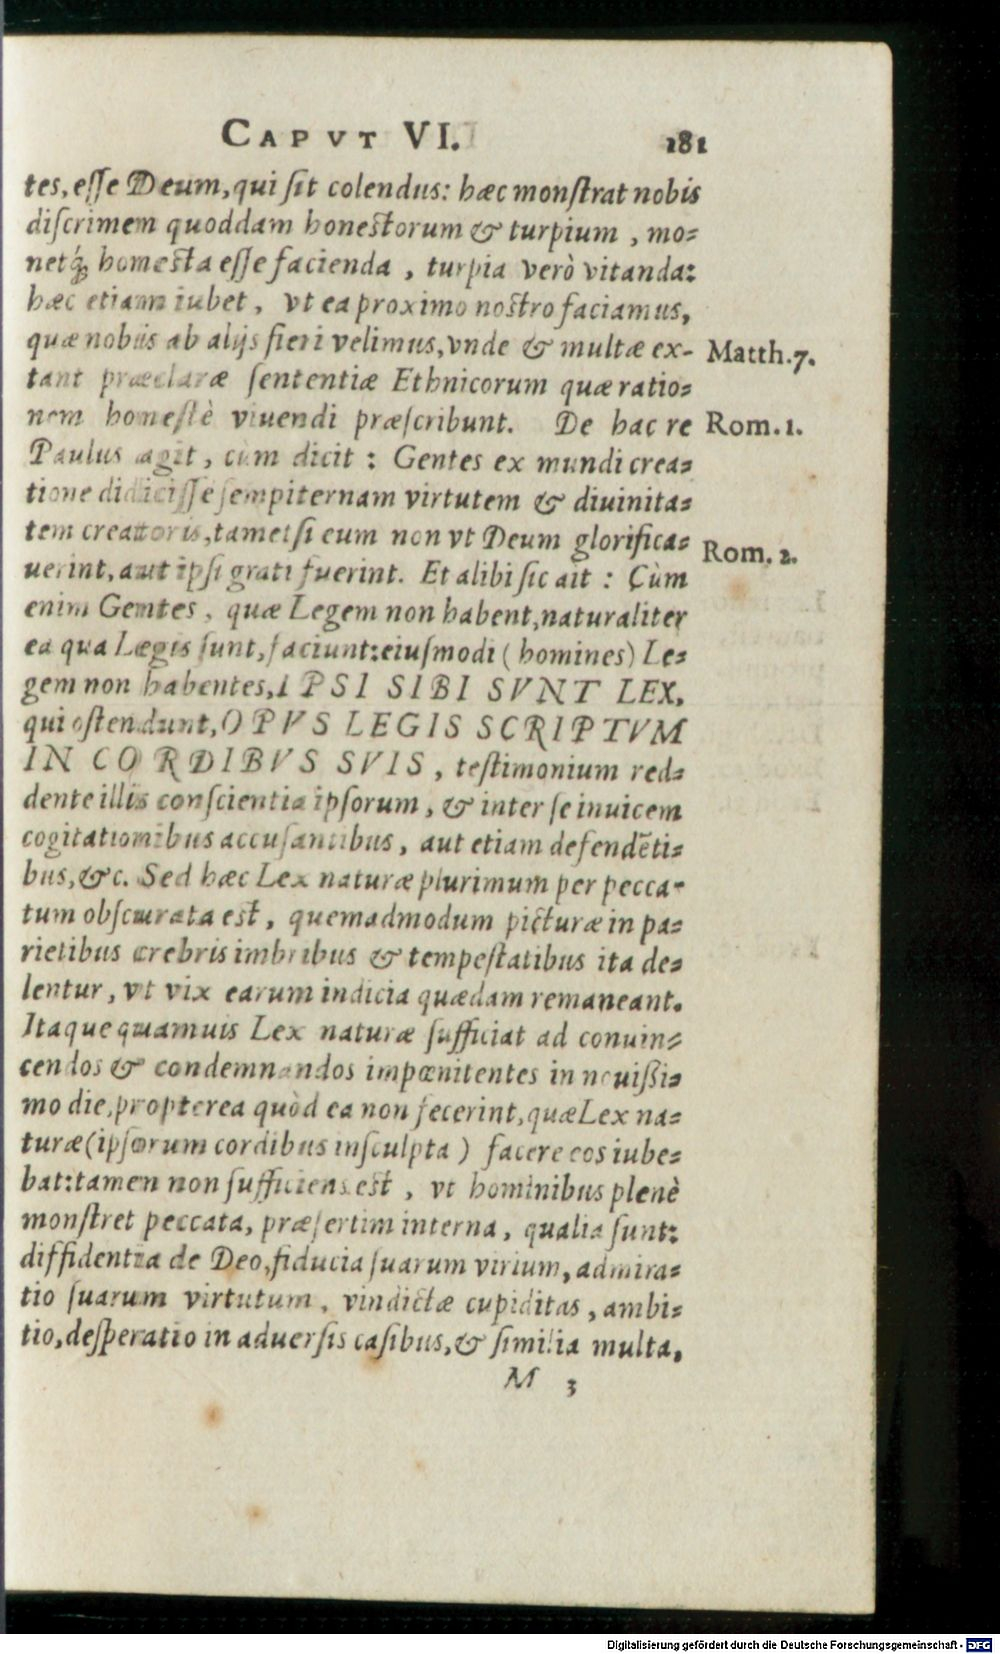 CAPVT VI. 181
tes, esse Deum, qui sit colendus: hæc monstrat nobis
discrimem quoddam honestorum & turpium, mo-
netq́; homesta esse facienda, turpia verò vitanda:
hæc etiam iubet, vt ea proximo nostro faciamus,
quæ nobis ab alijs fieri velimus, vnde & multæ ex-
Matth. 7.
tant præclaræ sententiæ Ethnicorum quæ ratio-
nem homestè viuendi præscribunt. De hac re
Rom. 1.
Paulus agit, cùm dicit: Gentes ex mundi crea-
tione didicisse sempiternam virtutem & diuinita-
tem creatoris, tametsi eum non vt Deum glorifica-
Rom. 2.
uerint, aut ipsi grati fuerint. Et alibi sic ait: Cùm
enim Gentes, quæ Legem non habent, naturaliter
ea qua Legis sunt, faciunt: eiusmodi (homines) Le-
gem non habentes, IPSI SIBI SVNT LEX,
qui ostendunt, OPVS LEGIS SCRIPTVM
IN CORDIBVS SVIS, testimonium red-
dente illis conscientia ipsorum, & inter se inuicem
cogitationibus accusantibus, aut etiam defendẽti-
bus, &c. Sed hæc Lex naturæ plurimum per pecca-
tum obscurata est, quemadmodum picturæ in pa-
rietibus crebris imbribus & tempestatibus ita de-
lentur, vt vix earum indicia quædam remaneant.
Itaque quamuis Lex naturæ sufficiat ad conuin-
cendos & condemnandos impœnitentes in nouissi-
mo die, propterea quòd ea non fecerint, quæ Lex na-
turæ (ipsorum cordibus insculpta) facere eos iube-
bat: tamen non sufficiens est, vt hominibus plenè
monstret peccata, præsertim interna, qualia sunt:
diffidentia de Deo, fiducia suarum virium, admira-
tio suarum virtutum, vindictæ cupiditas, ambi-
tio, desperatio in aduersis casibus, & similia multa,
M 3
Digitalisierung gefördert durch die Deutsche Forschungsgemeinschaft - DFG